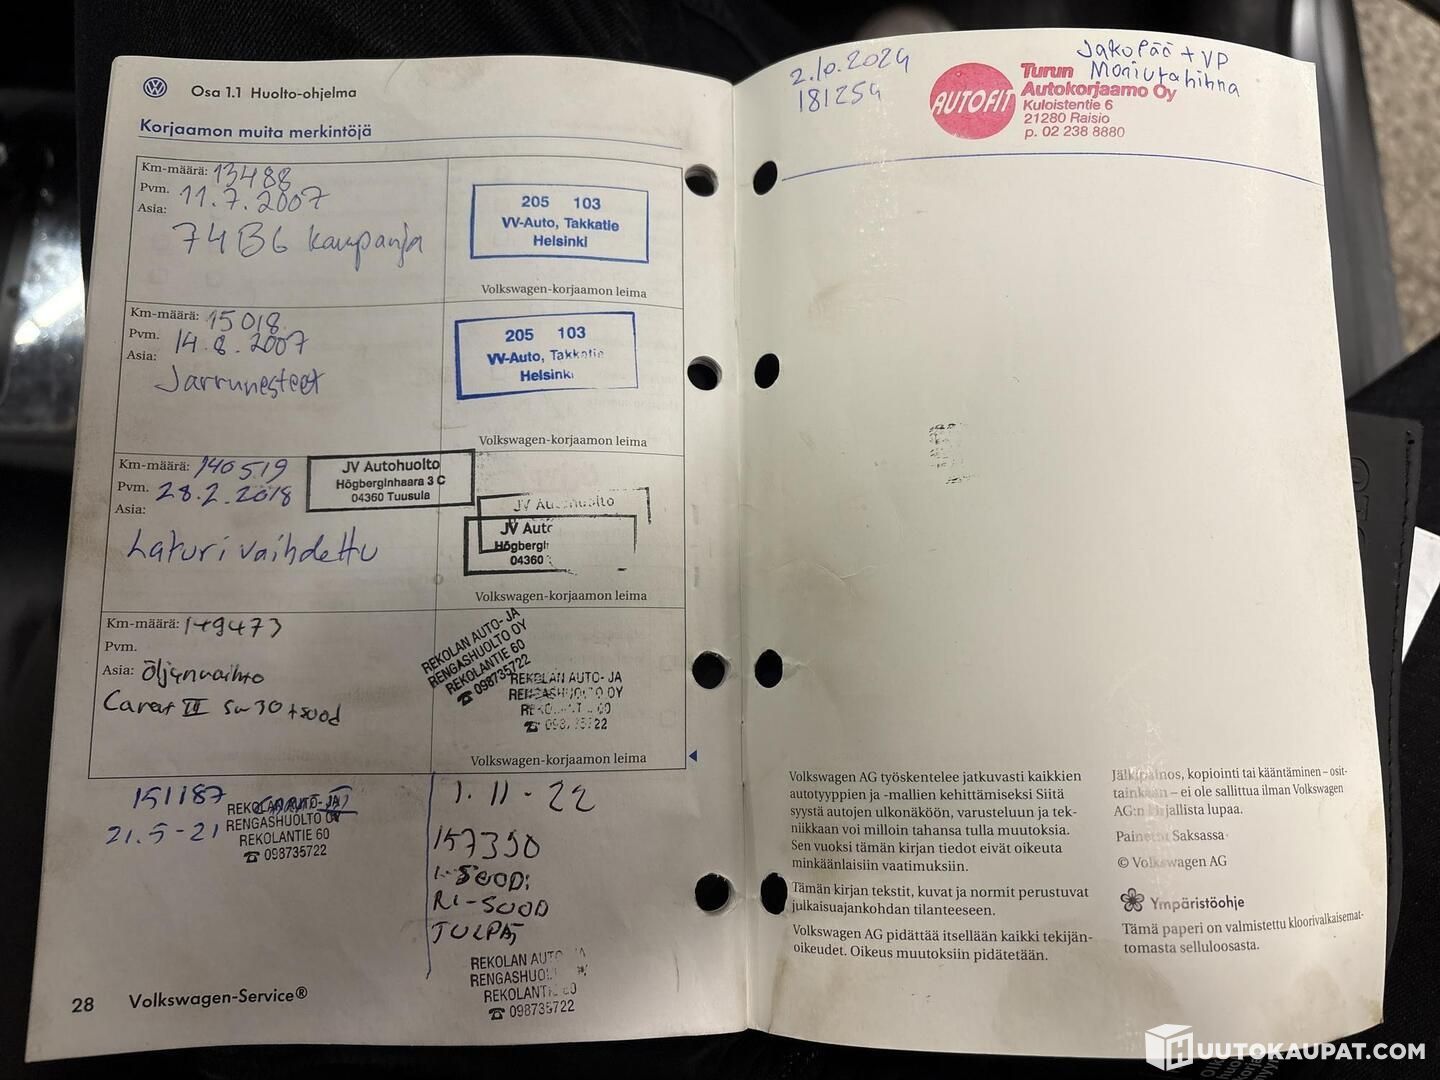 Osa 1.1 Huolto-ohjelma
Korjaamon muita merkintöjä
Km-määrä: 13488
Pvm. 11.7.2007
Asia:
74B6 kaupanja
205 103
VV-Auto, Takkatie
Helsinki
Volkswagen-korjaamon leima
Km-määrä: 15018
Pvm. 14.8.2007
Asia:
Jarrunesteet
205 103
VV-Auto, Takkatie
Helsinki
Volkswagen-korjaamon leima
Km-määrä: 140519
Pvm. 28.2.2018
Asia:
Laturi vaihdettu
JV Autohuolto
Högberginhaara 3 C
04360 Tuusula
JV Autohuolto
JV Auto
Högbergi
04360
Volkswagen-korjaamon leima
Km-määrä: 149473
Pvm.
Asia: Öljynvaihto
Carat III 5w30 + suod
REKOLAN AUTO- JA
RENGASHUOLTO OY
REKOLANTIE 60
☎ 098735722
REKOLAN AUTO- JA
RENGASHUOLTO OY
REKOLANTIE 60
☎ 098735722
Volkswagen-korjaamon leima
151187
21.5-21
REKOLAN AUTO-JA
RENGASHUOLTO OY
REKOLANTIE 60
☎ 098735722
1.11-22
157390
RI-SUOD
TULPAT
REKOLAN AUTO- JA
RENGASHUOL
REKOLANTIE 60
☎ 098735722
28 Volkswagen-Service®
2.10.2024
181254
AUTOFIT
Turun
Autokorjaamo Oy
Kuloistentie 6
21280 Raisio
p. 02 238 8880
Jakopää + VP
Moniurahihna
Volkswagen AG työskentelee jatkuvasti kaikkien
autotyyppien ja -mallien kehittämiseksi Siitä
syystä autojen ulkonäköön, varusteluun ja tek-
niikkaan voi milloin tahansa tulla muutoksia.
Sen vuoksi tämän kirjan tiedot eivät oikeuta
minkäänlaisiin vaatimuksiin.
Tämän kirjan tekstit, kuvat ja normit perustuvat
julkaisuajankohdan tilanteeseen.
Volkswagen AG pidättää itsellään kaikki tekijän-
oikeudet. Oikeus muutoksiin pidätetään.
Jälkipainos, kopiointi tai kääntäminen – osit-
tainkaan – ei ole sallittua ilman Volkswagen
AG:n kirjallista lupaa.
Painettu Saksassa
© Volkswagen AG
Ympäristöohje
Tämä paperi on valmistettu kloorivalkaisemat-
tomasta selluloosasta.
HUUTOKAUPAT.COM